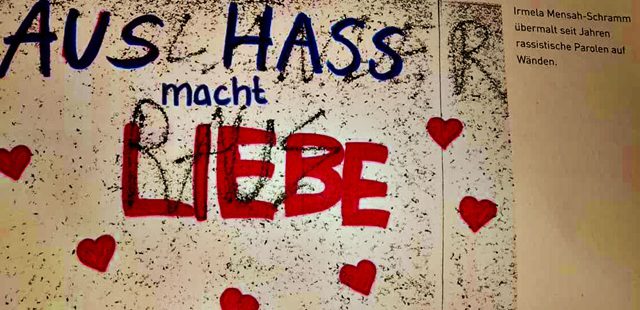 AUS HASS
macht
LIEBE
Irmela Mensah-Schramm
übermalt seit Jahren
rassistische Parolen auf
Wänden.